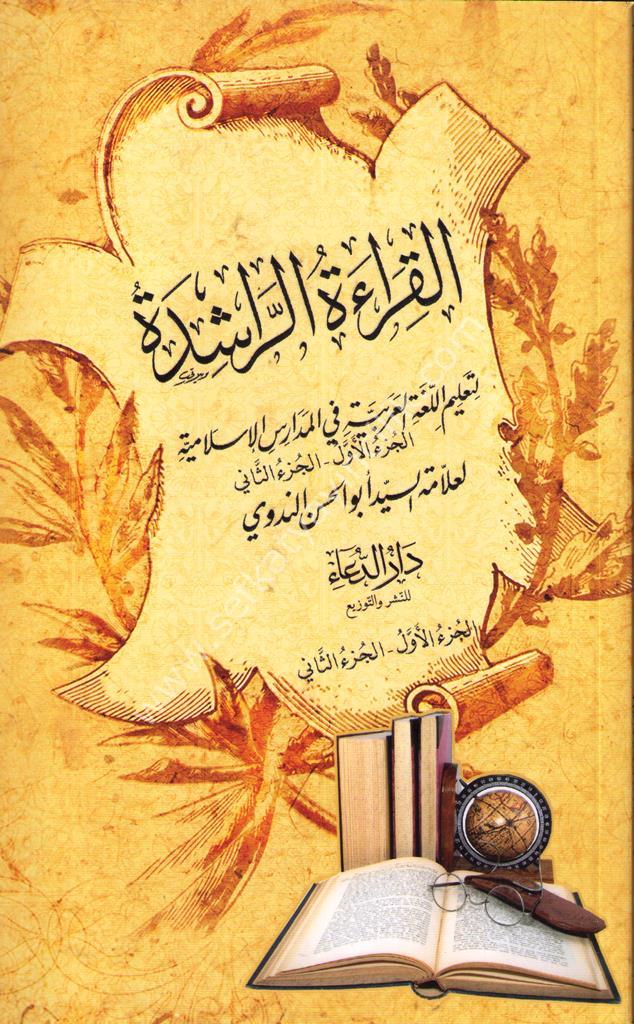 القِرَاءَةُ الرَّاشِدَةُ
لِتَعليم اللّغَة العَرَبيَّة في المَدَارِس الإسلاميَّة
الجُزءُ الأوَّلُ - الجُزءُ الثَّاني
لعلاّمة السيّد أبو الحسن الندوي
دَارُ الدُّعَاءِ
للنّشر والتّوزيع
الجُزءُ الأوَّلُ - الجُزءُ الثَّاني